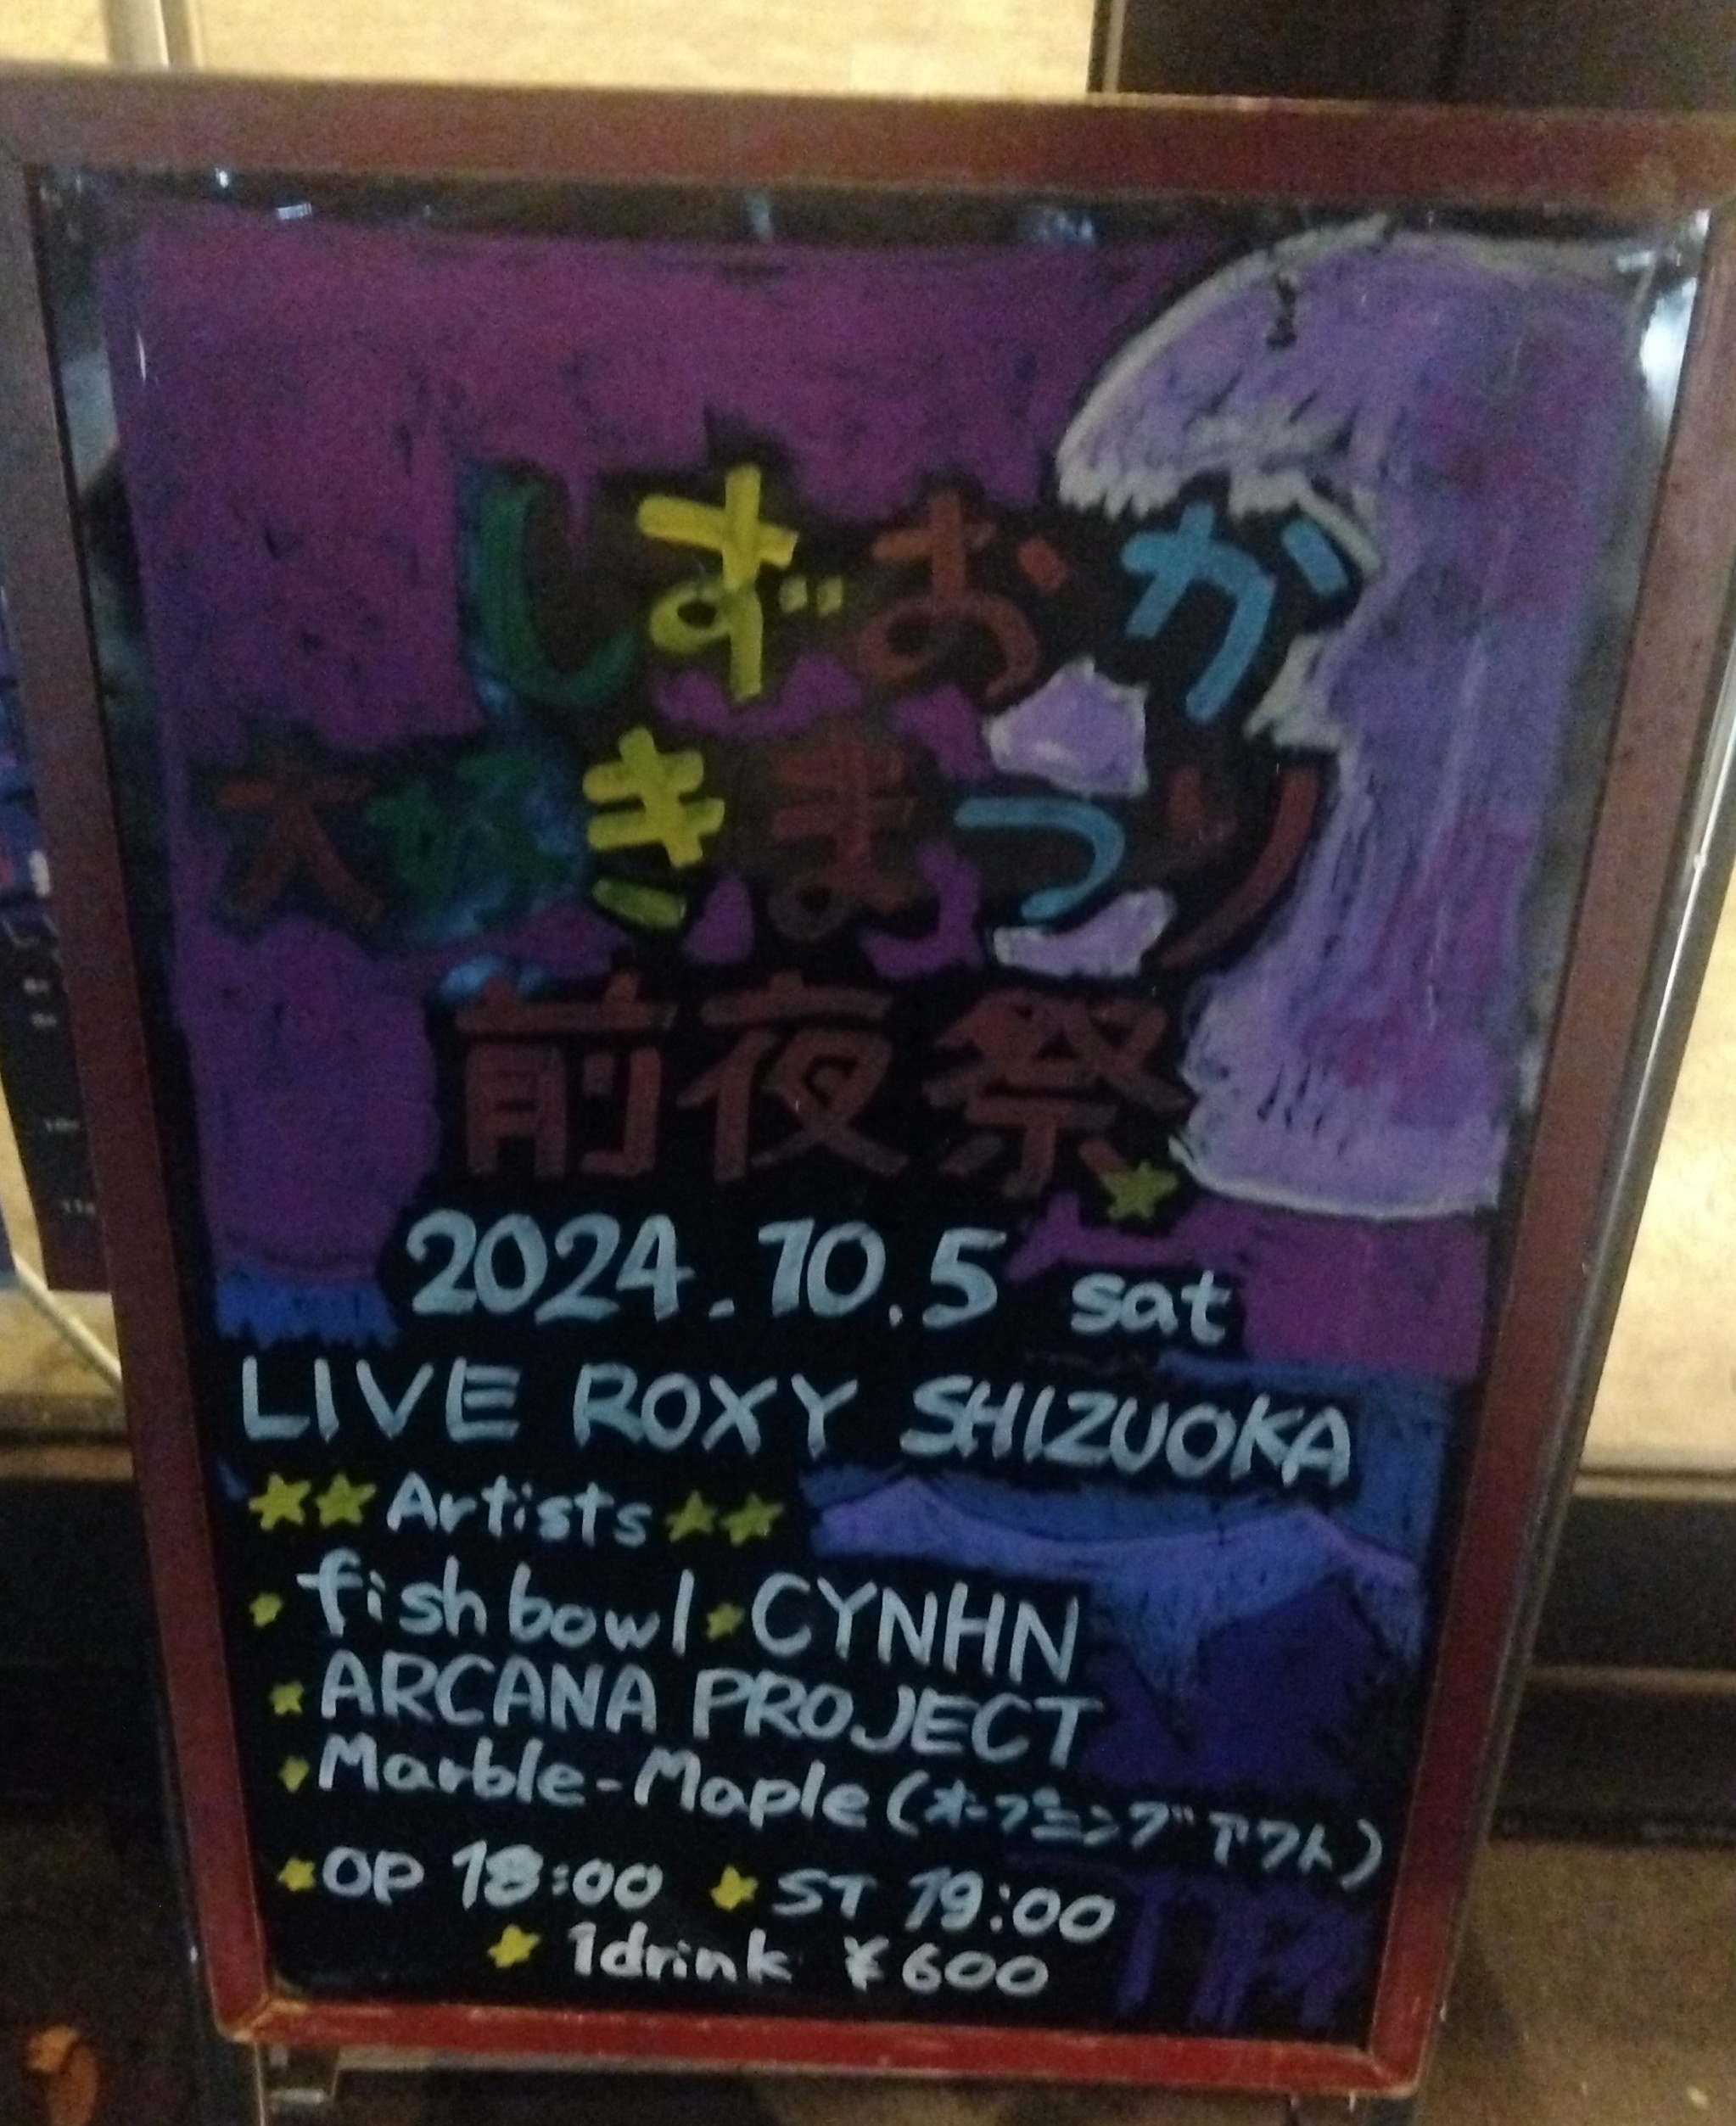 しずおか
大好きまつり
前夜祭
2024.10.5 sat
LIVE ROXY SHIZUOKA
★★Artists★★
★fishbowl★CYNHN
★ARCANA PROJECT
★Marble-Maple(オープニングアクト)
★OP 18:00 ★ST 19:00
★1drink ¥600